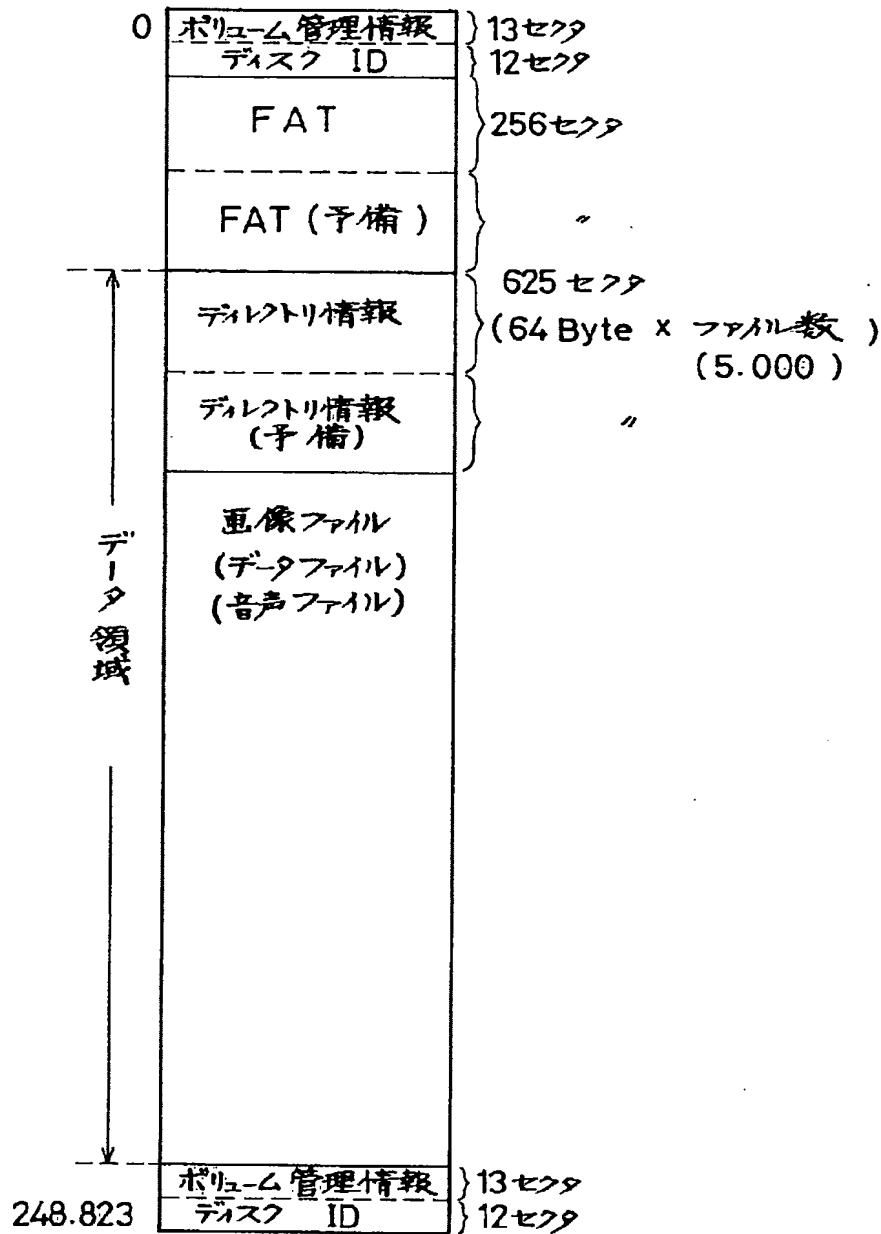 0 ボリューム管理情報 13セクタ
ディスク ID 12セクタ
FAT 256セクタ
FAT (予備) 〃
625セクタ
ディレクトリ情報 (64 Byte × ファイル数)
(5.000)
ディレクトリ情報 〃
(予備)
画像ファイル
(データファイル)
(音声ファイル)
データ領域
ボリューム管理情報 13セクタ
248.823 ディスク ID 12セクタ